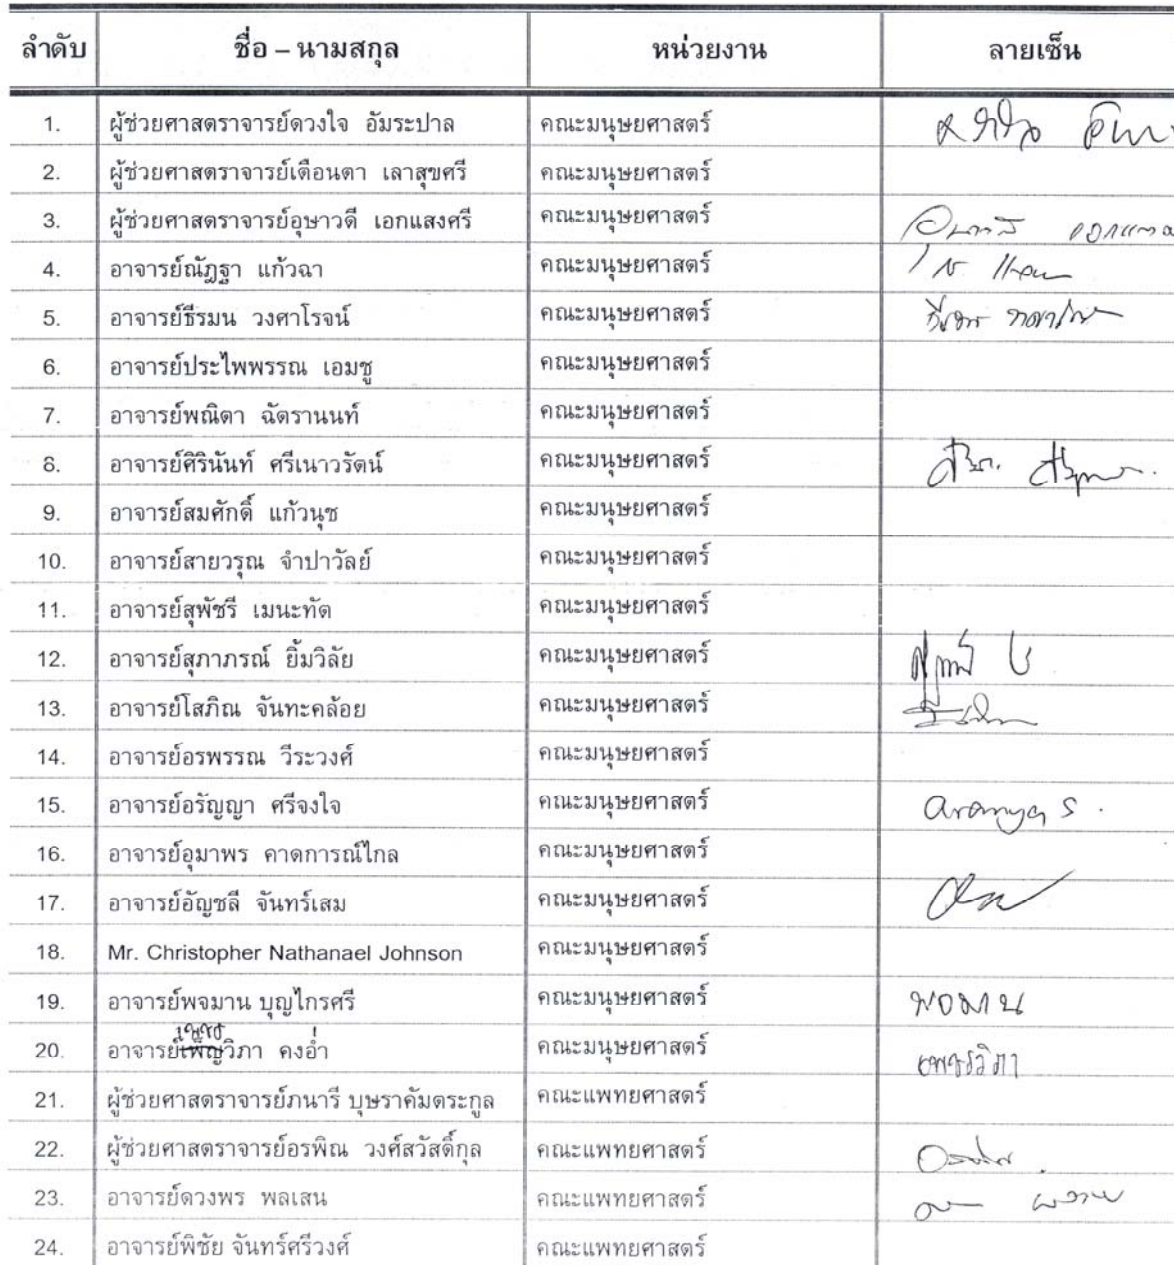 ลำดับ ชื่อ – นามสกุล หน่วยงาน ลายเซ็น
1. ผู้ช่วยศาสตราจารย์ดวงใจ อัมระปาล คณะมนุษยศาสตร์
2. ผู้ช่วยศาสตราจารย์เดือนตา เลาสุขศรี คณะมนุษยศาสตร์
3. ผู้ช่วยศาสตราจารย์อุษาวดี เอกแสงศรี คณะมนุษยศาสตร์
4. อาจารย์ณัฏฐา แก้วฉา คณะมนุษยศาสตร์
5. อาจารย์ธีรมน วงศาโรจน์ คณะมนุษยศาสตร์
6. อาจารย์ประไพพรรณ เอมชู คณะมนุษยศาสตร์
7. อาจารย์พณิตา ฉัตรานนท์ คณะมนุษยศาสตร์
8. อาจารย์ศิรินันท์ ศรีเนาวรัตน์ คณะมนุษยศาสตร์
9. อาจารย์สมศักดิ์ แก้วนุช คณะมนุษยศาสตร์
10. อาจารย์สายวรุณ จำปาวัลย์ คณะมนุษยศาสตร์
11. อาจารย์สุพัชรี เมนะทัต คณะมนุษยศาสตร์
12. อาจารย์สุภาภรณ์ ยิ้มวิลัย คณะมนุษยศาสตร์
13. อาจารย์โสภิณ จันทะคล้อย คณะมนุษยศาสตร์
14. อาจารย์อรพรรณ วีระวงศ์ คณะมนุษยศาสตร์
15. อาจารย์อรัญญา ศรีจงใจ คณะมนุษยศาสตร์ Aranya S.
16. อาจารย์อุมาพร คาดการณ์ไกล คณะมนุษยศาสตร์
17. อาจารย์อัญชลี จันทร์เสม คณะมนุษยศาสตร์
18. Mr. Christopher Nathanael Johnson คณะมนุษยศาสตร์
19. อาจารย์พจมาน บุญไกรศรี คณะมนุษยศาสตร์ พจมาน
เพชร
20. อาจารย์เพ็ญวิภา คงอ่ำ คณะมนุษยศาสตร์ เพชรวิภา
21. ผู้ช่วยศาสตราจารย์ภนารี บุษราคัมตระกูล คณะแพทยศาสตร์
22. ผู้ช่วยศาสตราจารย์อรพิณ วงศ์สวัสดิ์กุล คณะแพทยศาสตร์
23. อาจารย์ดวงพร พลเสน คณะแพทยศาสตร์
24. อาจารย์พิชัย จันทร์ศรีวงศ์ คณะแพทยศาสตร์